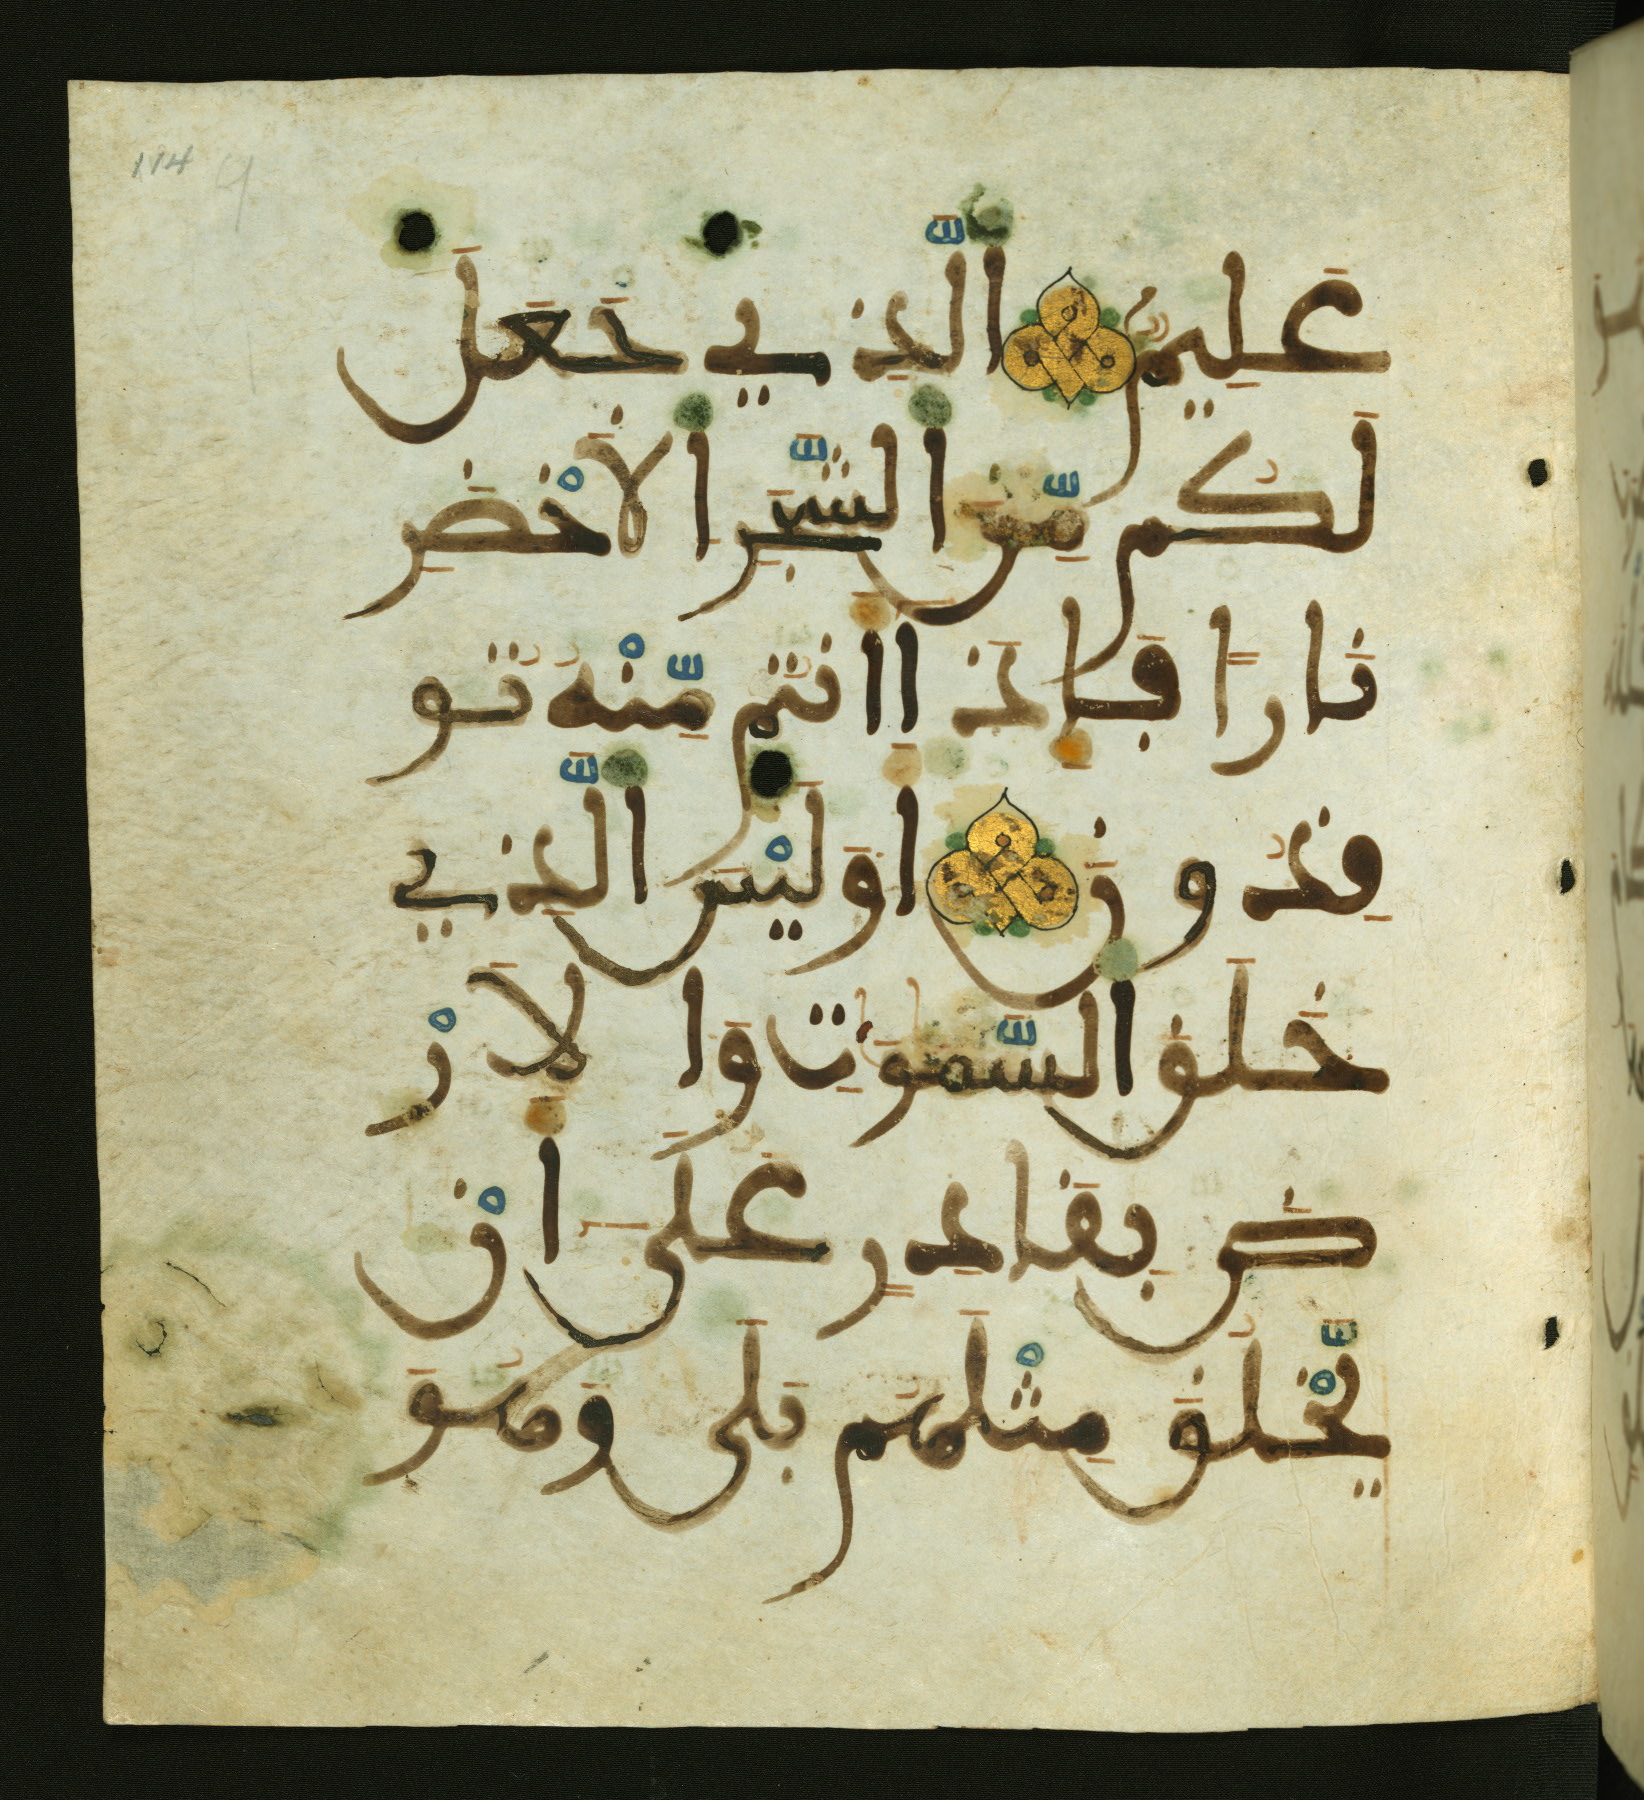 114
عَلِيمٌ الَّذِي جَعَلَ
لَكُم مِّنَ الشَّجَرِ الَاخْضَرِ
نَارًا فَإِذَا أَنتُم مِّنْهُ تُو
قِدُونَ أَوَلَيْسَ الَّذِي
خَلَقَ السَّمَٰوَٰتِ وَالَارْ
ضَ بِقَادِرٍ عَلَىٰ أَنْ
يَّخْلُقَ مِثْلَهُم بَلَىٰ وَهُوَ